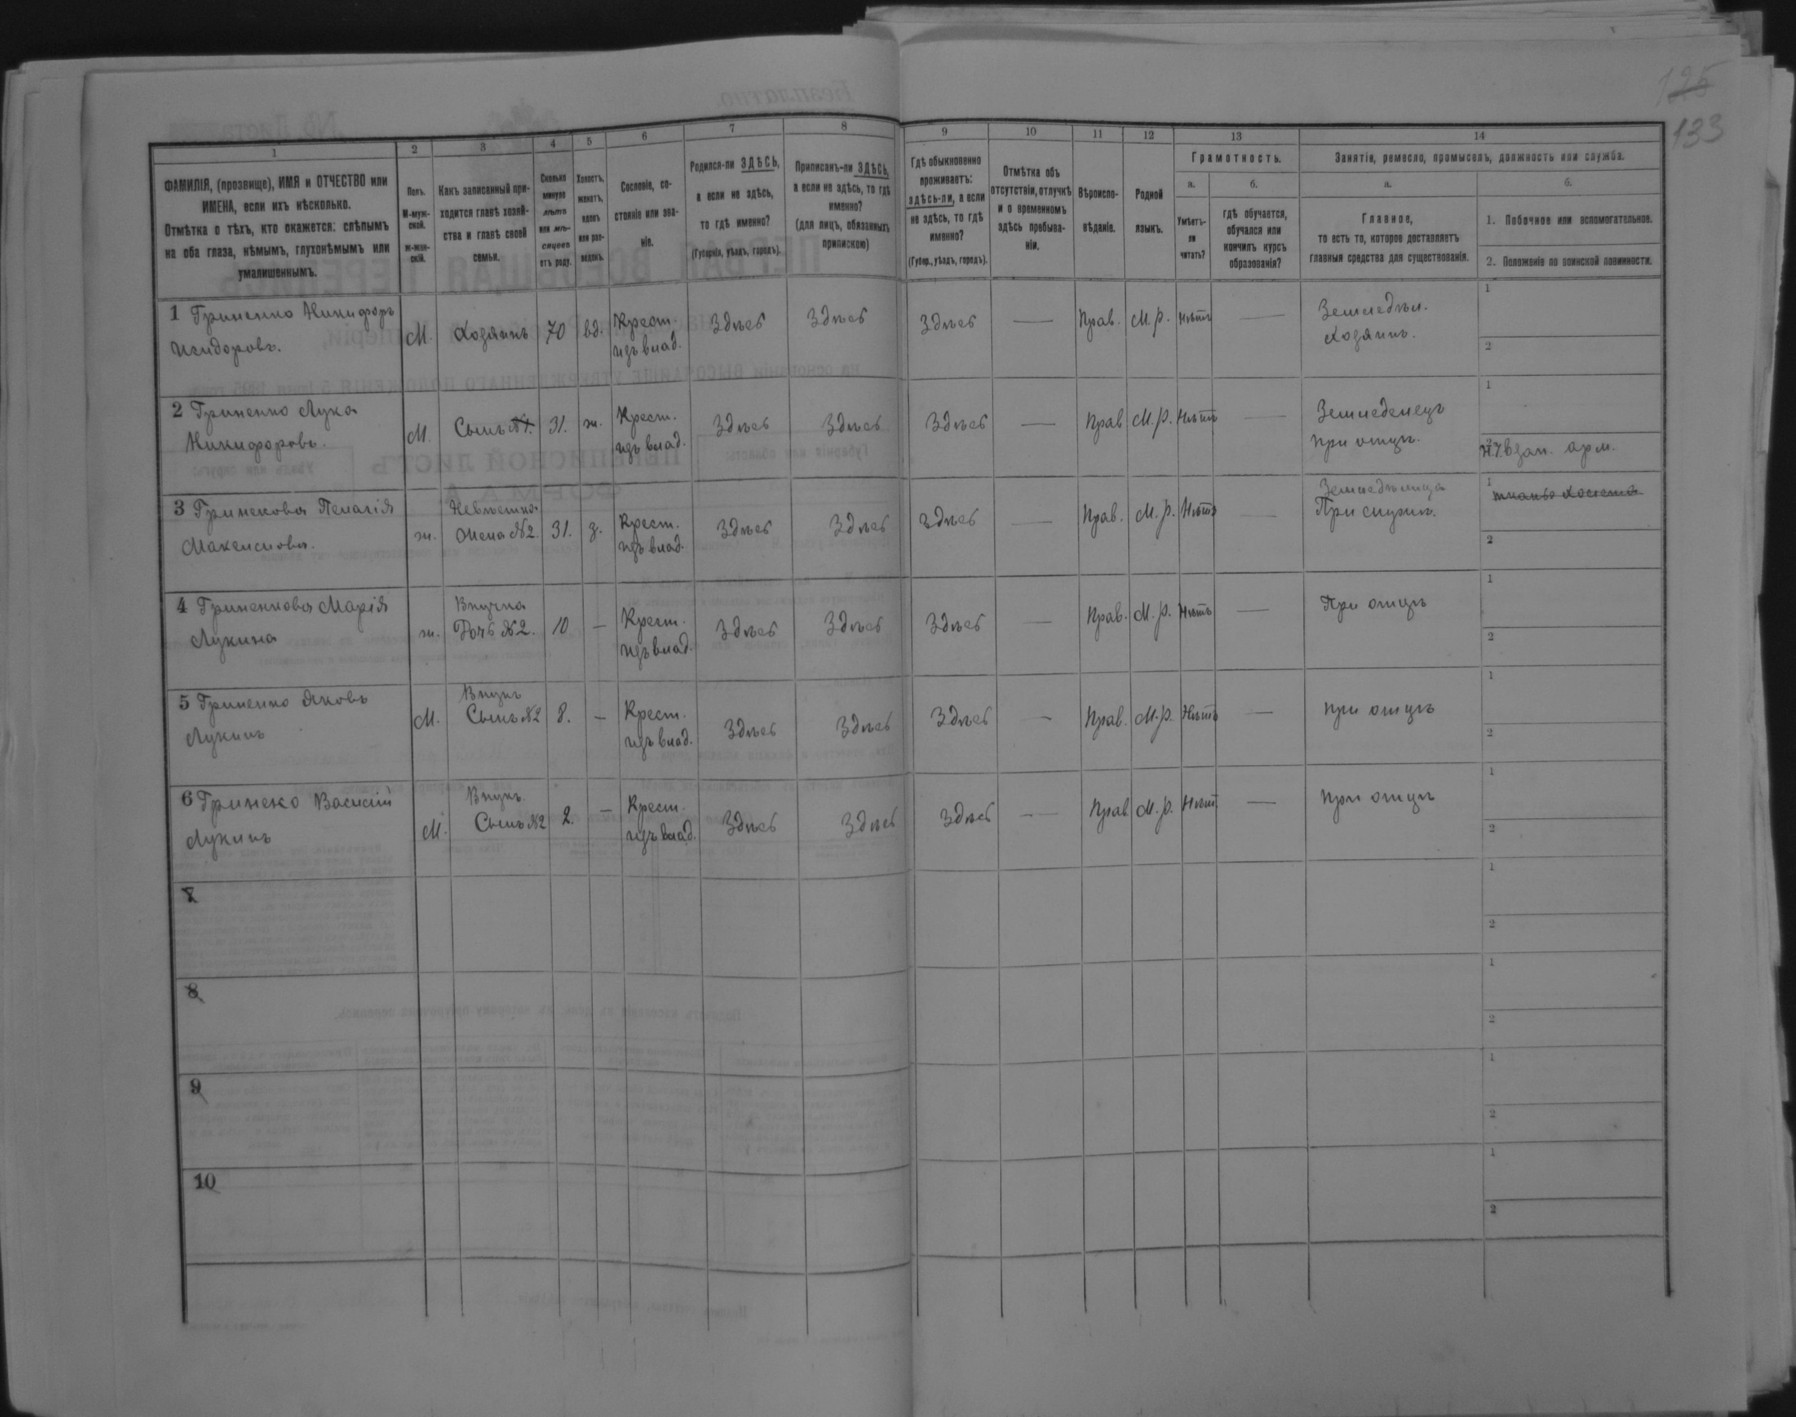 125
133
1 2 3 4 5 6 7 8 9 10 11 12 13 14
ФАМИЛІЯ, (прозвище), ИМЯ и ОТЧЕСТВО или
ИМЕНА, если ихъ нѣсколько.
Отмѣтка о тѣхъ, кто окажется: слѣпымъ
на оба глаза, нѣмымъ, глухонѣмымъ или
умалишеннымъ.
Полъ.
М-муж-
ской.
Ж-жен-
скій.
Какъ записанный при-
ходится главѣ хозяй-
ства и главѣ своей
семьи.
Сколько
минуло
лѣтъ
или мѣ-
сяцевъ
отъ роду.
Холостъ,
женатъ,
вдовъ
или раз-
веденъ.
Сословіе, со-
стояніе или зва-
ніе.
Родился-ли ЗДѢСЬ,
а если не здѣсь,
то гдѣ именно?
(Губернія, уѣздъ, городъ).
Приписанъ-ли ЗДѢСЬ,
а если не здѣсь, то гдѣ
именно?
(для лицъ, обязанныхъ
припискою)
Гдѣ обыкновенно
проживаетъ:
здѣсь-ли, а если
не здѣсь, то гдѣ
именно?
(Губер., уѣздъ, городъ).
Отмѣтка объ
отсутствіи, отлучкѣ
и о временномъ
здѣсь пребыва-
ніи.
Вѣроиспо-
вѣданіе.
Родной
языкъ.
Грамотность.
а.
Умѣетъ-
ли
читать?
б.
гдѣ обучается,
обучался или
кончилъ курсъ
образованія?
Занятіе, ремесло, промыселъ, должность или служба.
а.
Главное,
то есть то, которое доставляетъ
главныя средства для существованія.
б.
1. Побочное или вспомогательное.
2. Положеніе по воинской повинности.
1 Гриненко Никифоръ
Исидоровъ.
М. Хозяинъ 70 вд. Крест.
изъ влад.
Здѣсь Здѣсь Здѣсь — Прав. М.р. Нѣтъ —
Земледѣл.
Хозяинъ.
1
2
2 Гриненко Лука
Никифоровъ.
М. Сынъ №1. 31. ж. Крест.
изъ влад.
Здѣсь Здѣсь Здѣсь — Прав М.р. Нѣтъ —
Земледелецъ
При отцѣ.
1
2 зап. арм.
3 Гриненкова Пелагія
Максимова.
ж. Невѣстка
Жена №2. 31. з. Крест.
изъ влад.
Здѣсь Здѣсь здѣсь — Прав. М.р. Нѣтъ —
Земледѣлица
При мужѣ.
1
2
4 Гриненкова Марія
Лукина
ж. Внучка
Дочь №2. 10 — Крест.
изъ влад.
Здѣсь Здѣсь Здѣсь — Прав. М.р. Нѣтъ —
При отцѣ
1
2
5 Гриненко Яковъ
Лукинъ
М. Внукъ
Сынъ №2 8. — Крест.
изъ влад.
Здѣсь Здѣсь Здѣсь — Прав. М.р. Нѣтъ —
при отцѣ
1
2
6 Гринеко Василій
Лукинъ
М. Внукъ.
Сынъ №2 2. — Крест.
изъ влад.
Здѣсь Здѣсь Здѣсь — Прав. М.р. Нѣт —
при отцѣ
1
2
7
1
2
8
1
2
9
1
2
10
1
2